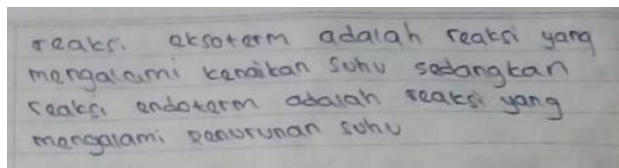 reaksi eksoterm adalah reaksi yang
mengalami kenaikan suhu sedangkan
reaksi endoterm adalah reaksi yang
mengalami penurunan suhu